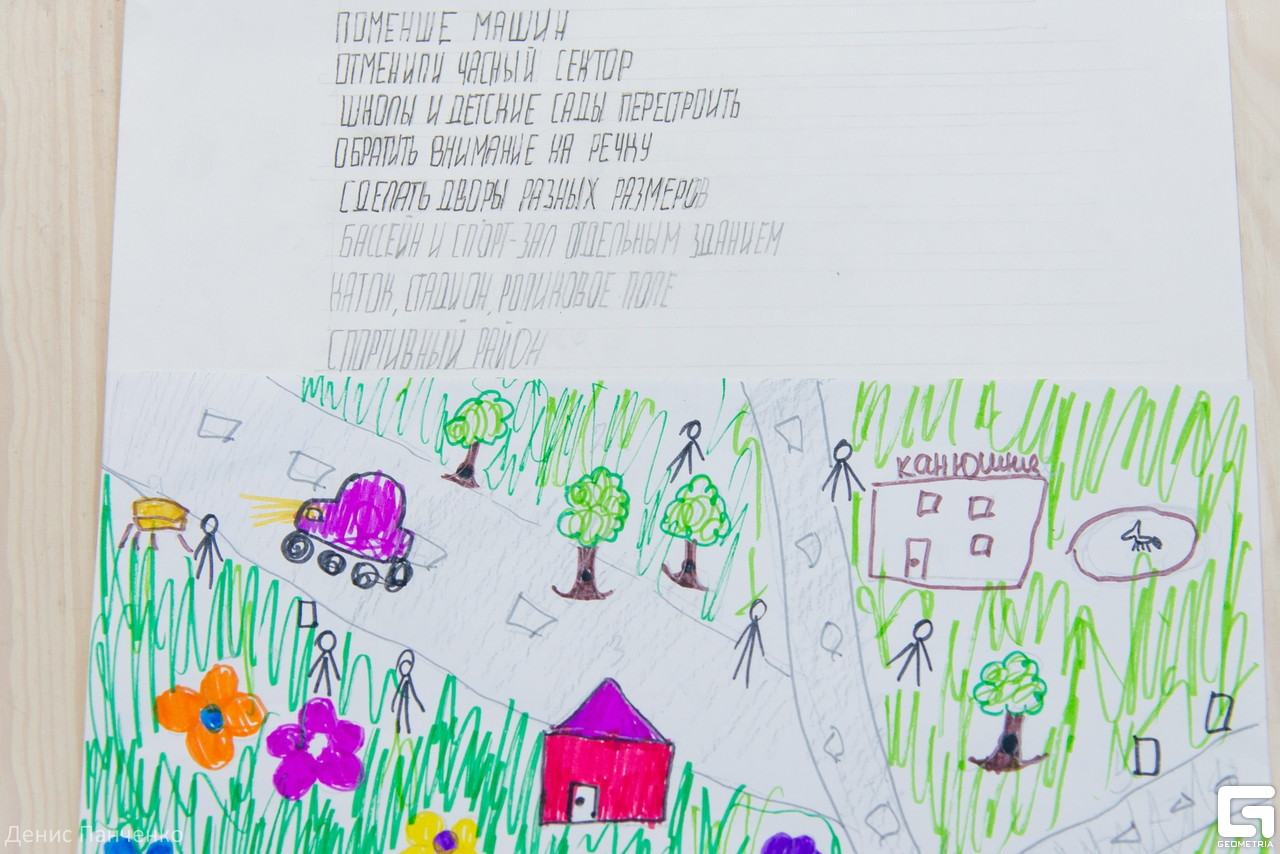 ПОМЕНШЕ МАШИН
ОТМЕНИЛИ ЧАСНЫЙ СЕКТОР
ШКОЛЫ И ДЕТСКИЕ САДЫ ПЕРЕСТРОИТЬ
ОБРАТИТЬ ВНИМАНИЕ НА РЕЧКУ
СДЕЛАТЬ ДВОРЫ РАЗНЫХ РАЗМЕРОВ
БАССЕЙН И СПОРТ-ЗАЛ ОТДЕЛЬНЫМ ЗДАНИЕМ
КАТОК, СТАДИОН, РОЛИКОВОЕ ПОЛЕ
СПОРТИВНЫЙ РАЙОН
канюшня
Денис Панченко
GEOMETRIA